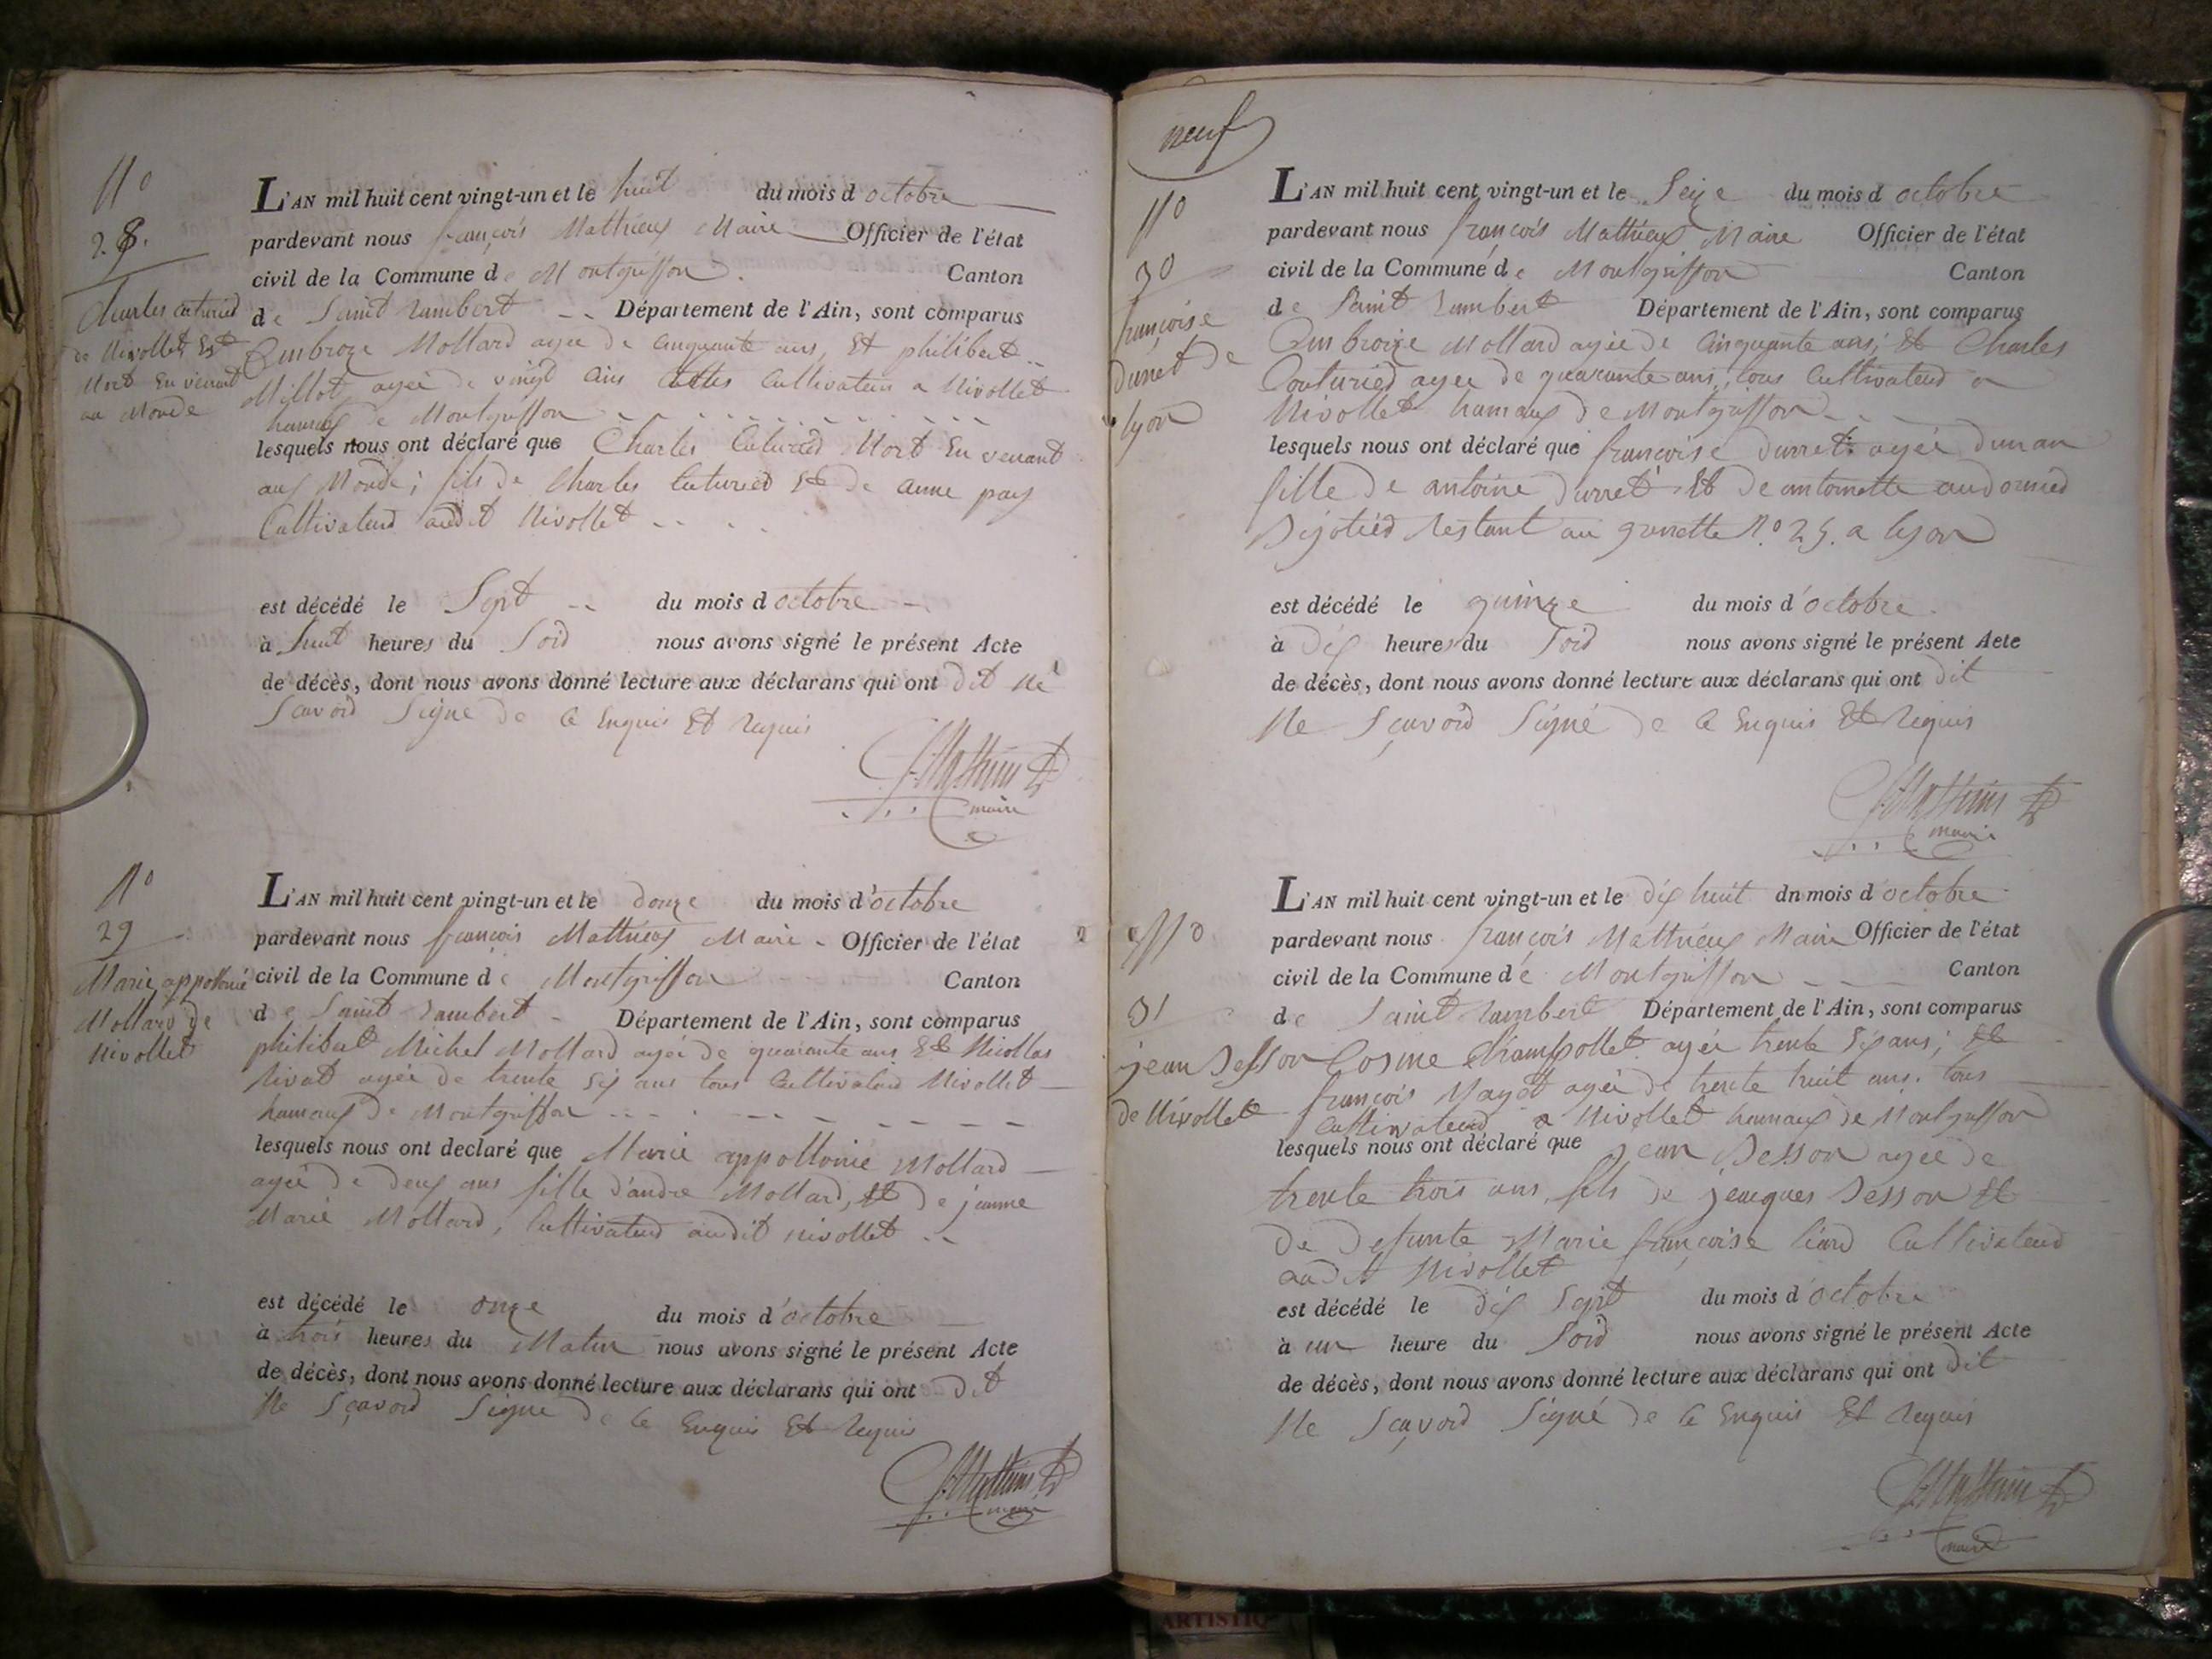 N°
28.
Charles Couturied
de Nivollet Est
Mort En venant
au Monde
L'AN mil huit cent vingt-un et le huit du mois d octobre
pardevant nous françois Mathieux Maire Officier de l'état
civil de la Commune de Montgriffon. Canton
de Saint rambert Département de l'Ain, sont comparus
Ambroize Mollard agée de Cinquante ans, Et philibert
Millot agée de vingt Cultivateurs a Nivollet
hameaux de Montgriffon
lesquels nous ont déclaré que Charles Couturied Mort En venant
aux Monde; fils de Charles Couturied Et de anne pay
Cultivateud audit Nivollet
est décédé le Sept du mois d octobre
à huit heures du Soid nous avons signé le présent Acte
de décès, dont nous avons donné lecture aux déclarans qui ont dit Ne
Scavoid Signe de Ce Enquis Et requis
f. Mathieux
maire
N°
29
Marie appollonie
Mollard de
Nivollet
L'AN mil huit cent vingt-un et le douze du mois d'octobre
pardevant nous françois Mathieux Maire Officier de l'état
civil de la Commune de Montgriffon Canton
de Saint rambert Département de l'Ain, sont comparus
philibert Michel Mollard agée de quarante ans Et Nicollas
rivat agée de trente Six ans tous Cultivateud Nivollet
hameaux de Montgriffon
lesquels nous ont declaré que Marie appollonie Mollard
agée de deux ans fille d'andre Mollard, Et de jeanne
Marie Mollard, Cultivateud audit nivollet
est décédé le onze du mois d'octobre
à trois heures du Matin nous avons signé le présent Acte
de décès, dont nous avons donné lecture aux déclarans qui ont dit
Ne Sçavoid Signe de Ce Enquis Et requis
f. Mathieux
maire
neuf
N°
30
françoise
durret de
lyon
L'AN mil huit cent vingt-un et le Seize du mois d octobre
pardevant nous françois Mathieux Maire Officier de l'état
civil de la Commune de Montgriffon Canton
de Saint rambert Département de l'Ain, sont comparus
Ambroize Mollard agée de Cinquante ans; Et Charles
Couturied agee de quarante ans, tous Cultivateud a
Nivollet hameaux de Montgriffon
lesquels nous ont déclaré que françoise durret agée dunan
fille de antoine durret Et de antoinette
restant au N.° 25. a lyon
est décédé le quinze du mois d'octobre
à dix heures du Soid nous avons signé le présent Acte
de décès, dont nous avons donné lecture aux déclarans qui ont dit
Ne Sçavoid Signé de Ce Enquis Et requis
f. Mathieux
maire
N°
31
jean Desson
de Nivollet
L'AN mil huit cent vingt-un et le dix huit dn mois d'octobre
pardevant nous françois Mathieux Maire Officier de l'état
civil de la Commune de Montgriffon Canton
de Saint rambert Département de l'Ain, sont comparus
Cosme Champollet agée trente Six ans; Et
françois Mayet agée de trente huit ans. tous
Cultivateud a Nivollet hameaux de Montgriffon
lesquels nous ont déclaré que jean Desson agée de
trente trois ans, fils de jeacques Desson Et
de defunte Marie françoise liard Cultivateud
audit Nivollet
est décédé le dix Sept du mois d'octobre
à un heure du Soid nous avons signé le présent Acte
de décès, dont nous avons donné lecture aux déclarans qui ont dit
Ne Sçavoid Signé de Ce Enquis Et requis
f. Mathieux
maire
ARTISTIQ